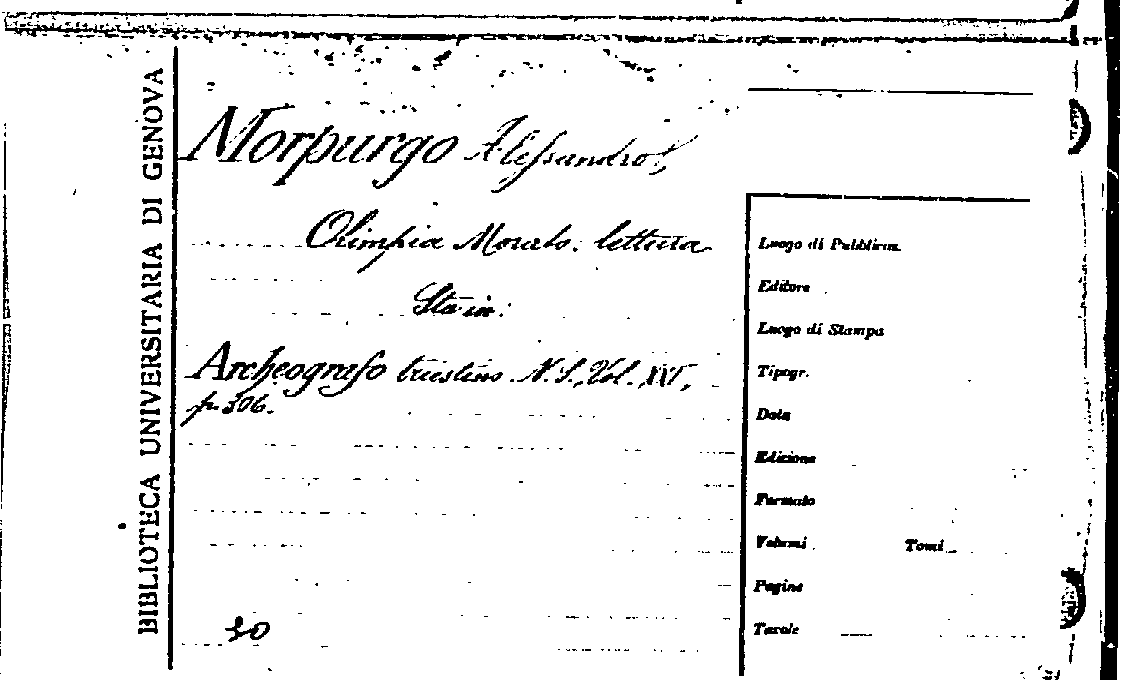 BIBLIOTECA UNIVERSITARIA DI GENOVA
Morpurgo Alessandro,
Olimpia Morato. lettura
Sta in:
Archeografo triestino N. S., Vol. XVI,
p. 306.
30
Luogo di Pubblicaz.
Editore
Luogo di Stampa
Tipogr.
Data
Edizione
Formato
Volumi Tomi
Pagine
Tavole